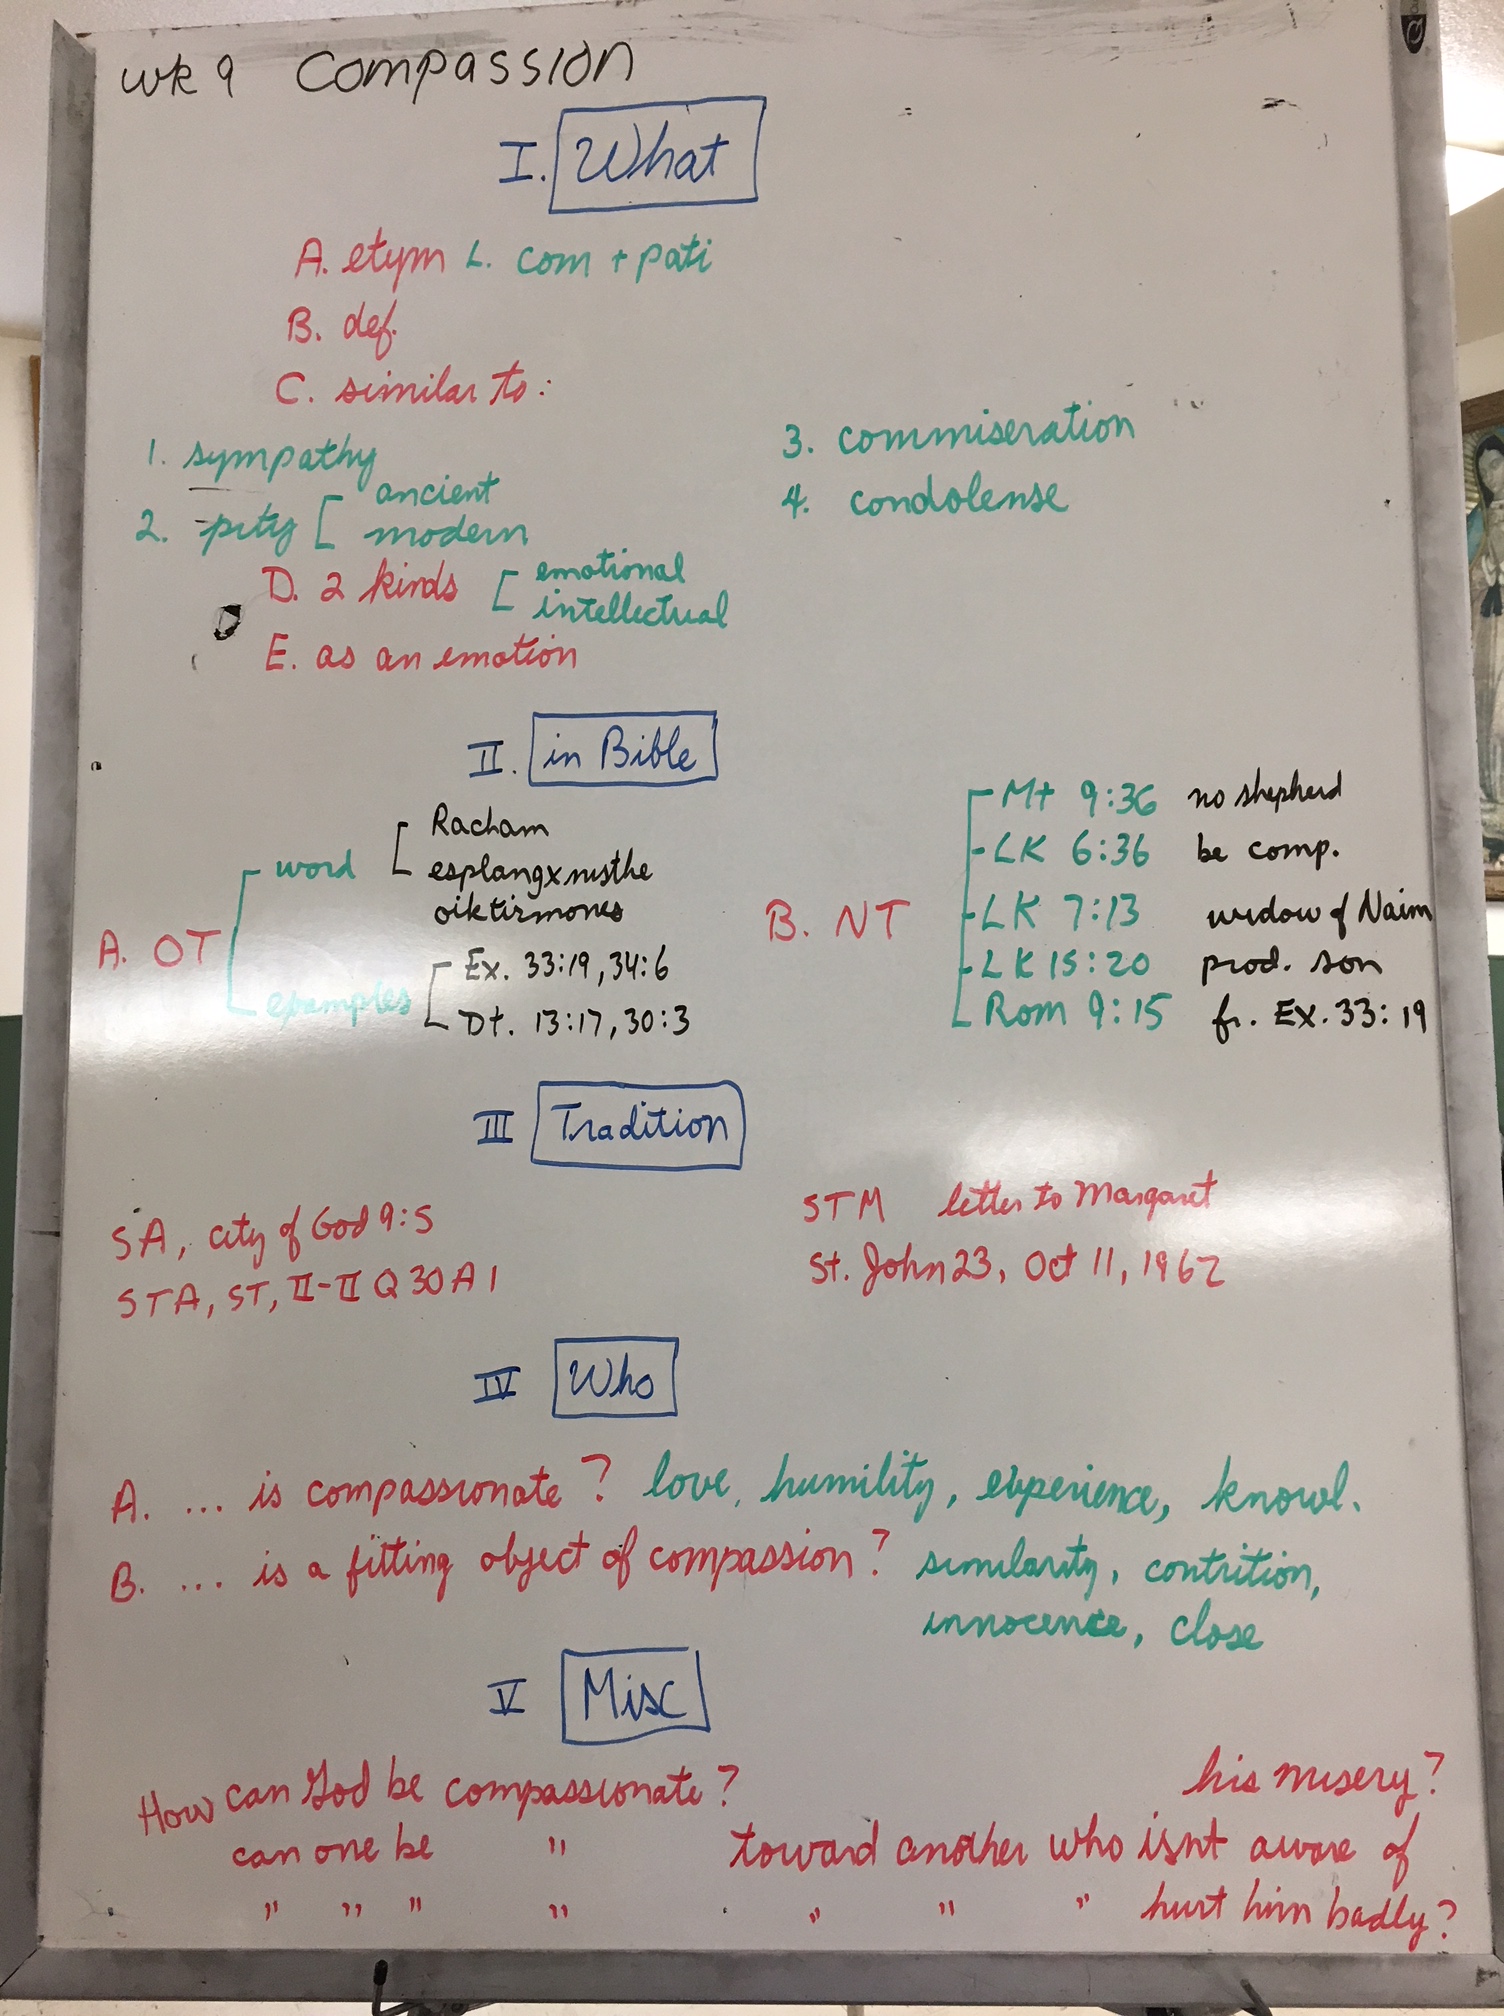 wk 9 Compassion
I. What
A. etym L. com + pati
B. def.
C. similar to:
1. sympathy
2. pity [ ancient
modern
3. commiseration
4. condolense
D. 2 kinds [ emotional
intellectual
E. as an emotion
II. in Bible
A. OT
word [ Racham
esplangxnisthe
oiktirmones
examples [ Ex. 33:19, 34:6
Dt. 13:17, 30:3
B. NT
Mt 9:36 no shepherd
LK 6:36 be comp.
LK 7:13 widow of Naim
LK 15:20 prod. son
Rom 9:15 fr. Ex. 33:19
III Tradition
SA, city of God 9:5
STA, ST, II-II Q 30 A 1
STM letter to Margaret
St. John 23, Oct 11, 1962
IV Who
A. ... is compassionate? love, humility, experience, knowl.
B. ... is a fitting object of compassion? similarity, contrition,
innocence, close
V Misc
How can God be compassionate?
can one be " toward another who isnt aware of his misery?
" " " " " " " hurt him badly?